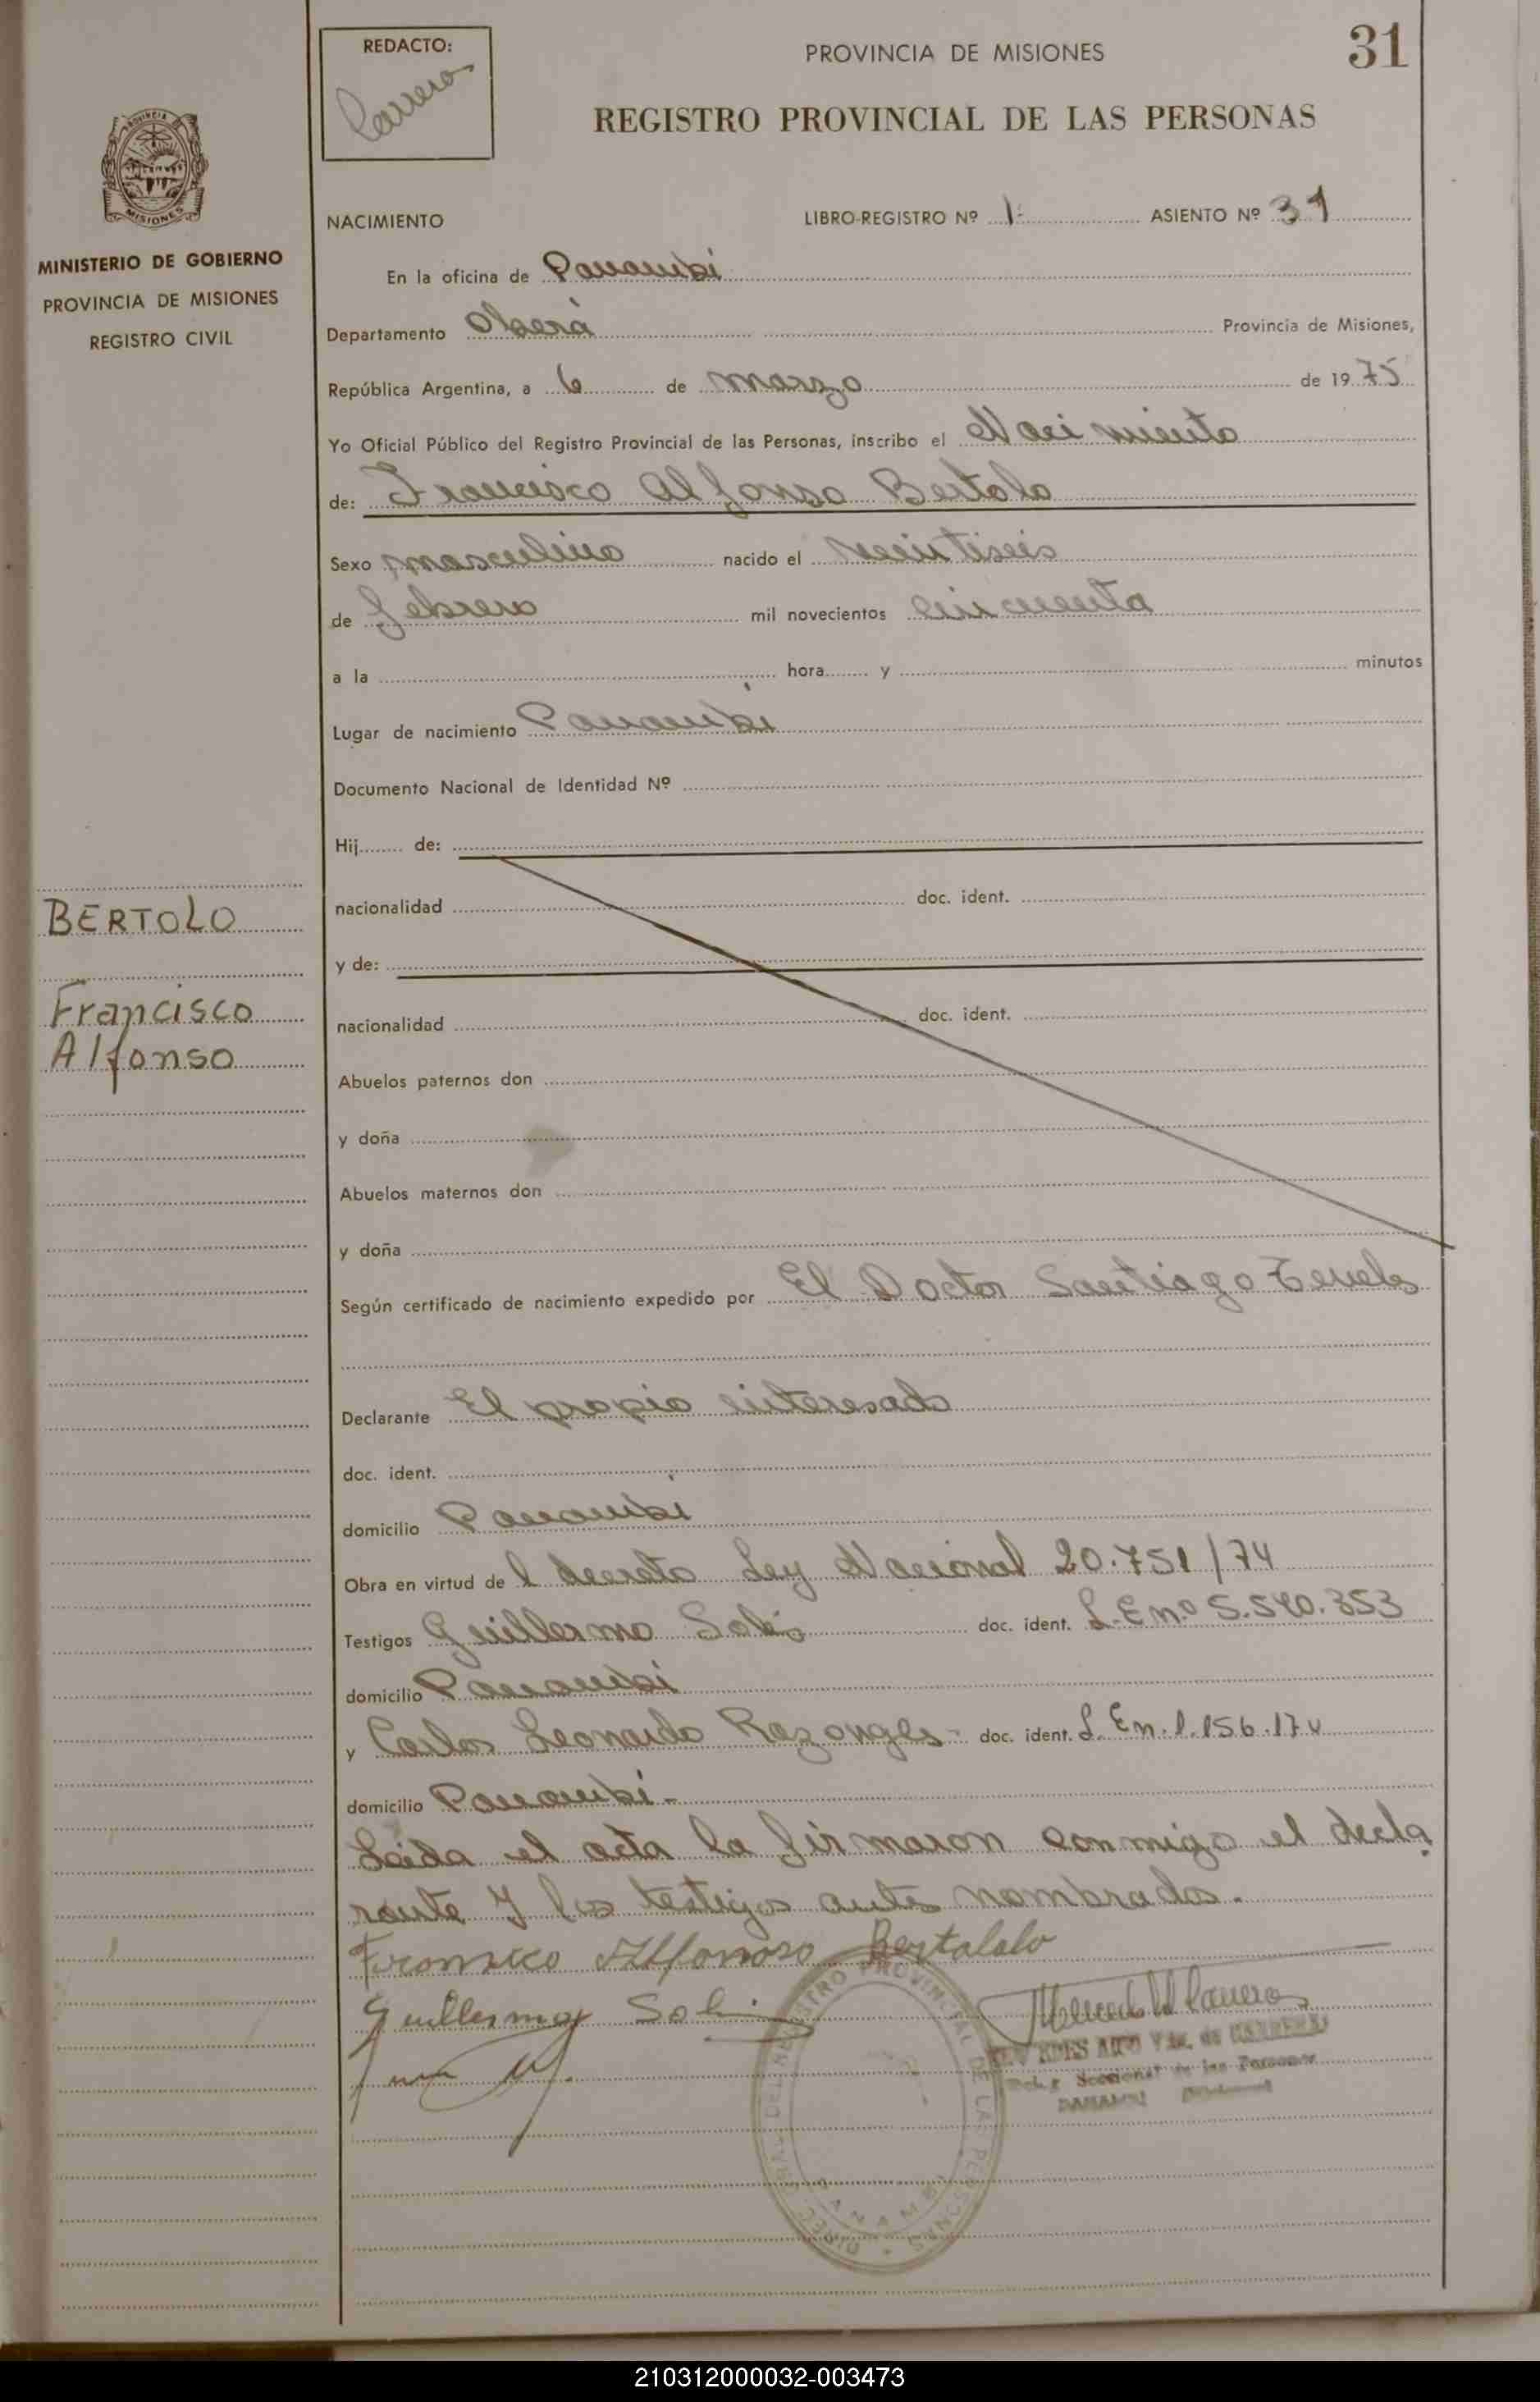 31
REDACTO:
Carrera
PROVINCIA DE MISIONES
REGISTRO PROVINCIAL DE LAS PERSONAS
PROVINCIA
MISIONES
MINISTERIO DE GOBIERNO
PROVINCIA DE MISIONES
REGISTRO CIVIL
NACIMIENTO LIBRO-REGISTRO Nº 1- ASIENTO Nº 31
En la oficina de Panambí
Departamento Oberá Provincia de Misiones,
República Argentina, a 6 de marzo de 1975
Yo Oficial Público del Registro Provincial de las Personas, inscribo el Nacimiento
de: Francisco Alfonso Bertolo
Sexo masculino nacido el veintiseis
de febrero mil novecientos cincuenta
a la hora y minutos
Lugar de nacimiento Panambí
Documento Nacional de Identidad Nº
Hij de:
nacionalidad doc. ident.
BERTOLO
y de:
Francisco
nacionalidad doc. ident.
Alfonso
Abuelos paternos don
y doña
Abuelos maternos don
y doña
Según certificado de nacimiento expedido por El Doctor Santiago
Declarante El propio interesado
doc. ident.
domicilio Panambí
Obra en virtud de l decreto Ley Nacional 20.751/74
Testigos Guillermo doc. ident. L.E nº 5.540.353
domicilio Panambí
y Carlos Leonardo doc. ident. L.E n. 1.156.174
domicilio Panambí-
Leida el acta la firmaron conmigo el decla
rante y los testigos antes nombrados.
Alfonso
Guillermo
DEL REGISTRO PROVINCIAL DE LA PERSONAS
PANAMBI
Vda. de CARRERA
Seccional de las Personas
PANAMBI
210312000032-003473